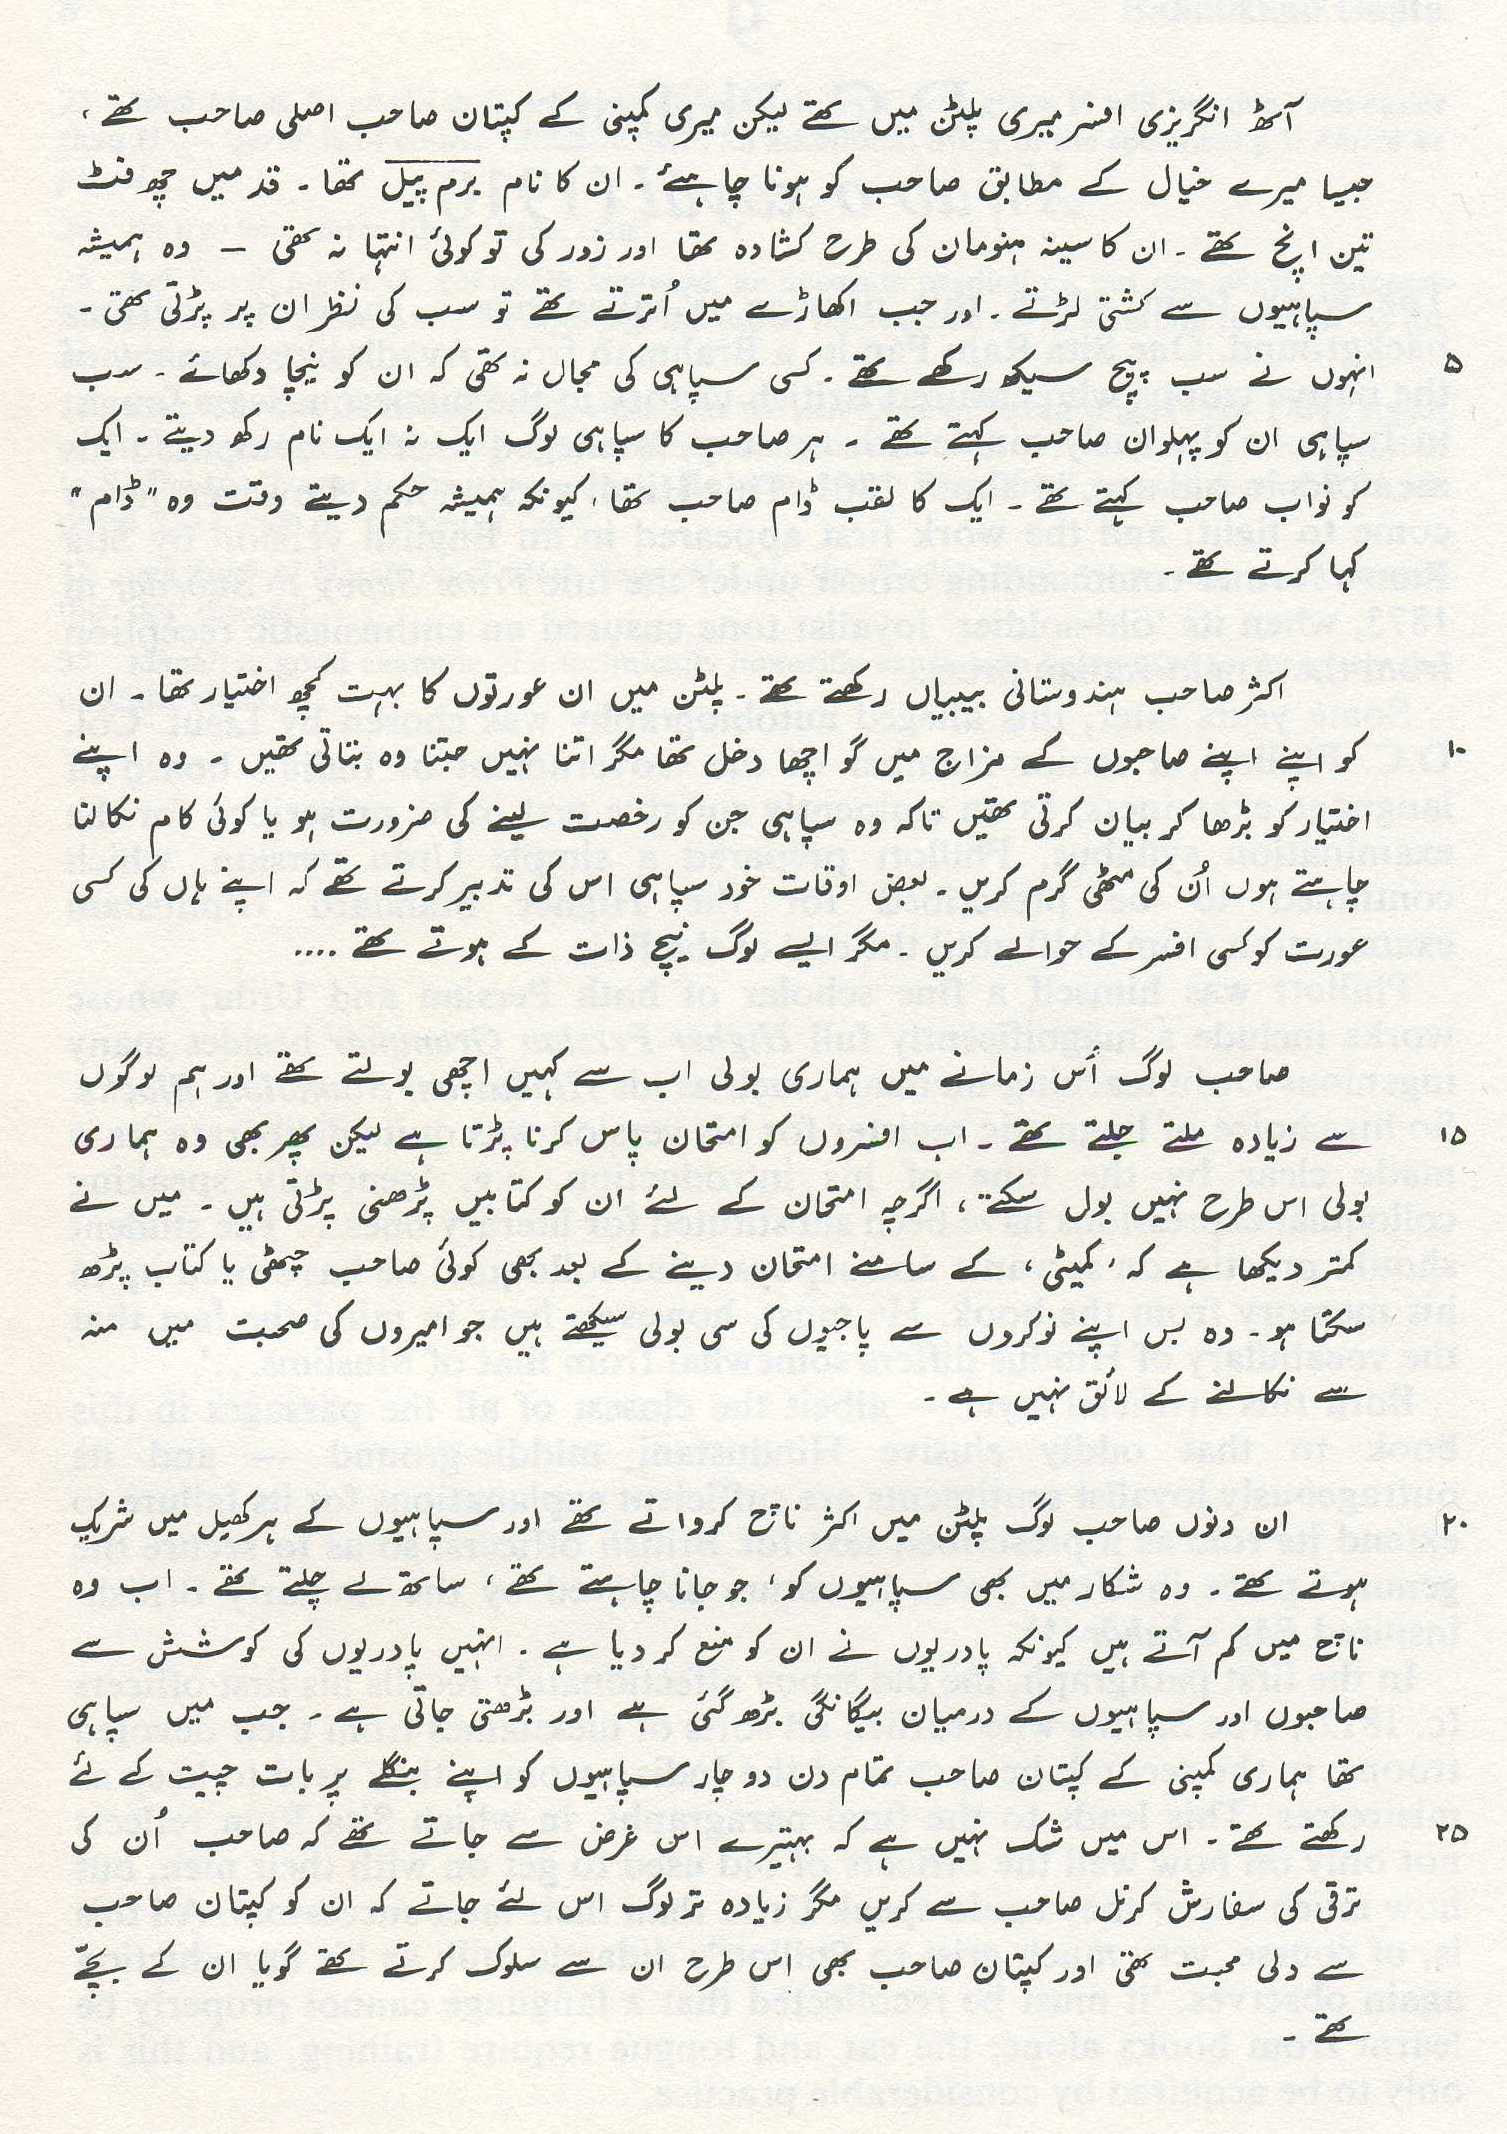 آٹھ انگریزی افسر میری پلٹن میں تھے لیکن میری کمپنی کے کپتان صاحب اصلی صاحب تھے ،
جیسا میرے خیال کے مطابق صاحب کو ہونا چاہئے ۔ ان کا نام برم پیل تھا ۔ قد میں چھ فٹ
تین اِنچ تھے ۔ ان کا سینہ ہنومان کی طرح کشادہ تھا اور زور کی تو کوئی انتہا نہ تھی – وہ ہمیشہ
سپاہیوں سے کشتی لڑتے ۔ اور جب اکھاڑے میں اُترتے تھے تو سب کی نظر ان پر پڑتی تھی ۔
۵ انہوں نے سب پیچ سیکھ رکھے تھے ۔ کسی سپاہی کی مجال نہ تھی کہ ان کو نیچا دکھائے ۔ سب
سپاہی ان کو پہلوان صاحب کہتے تھے ۔ ہر صاحب کا سپاہی لوگ ایک نہ ایک نام رکھ دیتے ۔ ایک
کو نواب صاحب کہتے تھے ۔ ایک کا لقب ڈام صاحب تھا ، کیونکہ ہمیشہ حکم دیتے وقت وہ "ڈام"
کہا کرتے تھے ۔
اکثر صاحب ہندوستانی بیبیاں رکھتے تھے ۔ پلٹن میں ان عورتوں کا بہت کچھ اختیار تھا ۔ ان
۱۰ کو اپنے اپنے صاحبوں کے مزاج میں گو اچھا دخل تھا مگر اتنا نہیں جتنا وہ بتاتی تھیں ۔ وہ اپنے
اختیار کو بڑھا کر بیان کرتی تھیں تاکہ وہ سپاہی جن کو رخصت لینے کی ضرورت ہو یا کوئی کام نکالنا
چاہتے ہوں اُن کی مٹھی گرم کریں ۔ بعض اوقات خود سپاہی اس کی تدبیر کرتے تھے کہ اپنے ہاں کی کسی
عورت کو کسی افسر کے حوالے کریں ۔ مگر ایسے لوگ نیچ ذات کے ہوتے تھے ....
صاحب لوگ اُس زمانے میں ہماری بولی اب سے کہیں اچھی بولتے تھے اور ہم لوگوں
۱۵ سے زیادہ ملتے جلتے تھے ۔ اب افسروں کو امتحان پاس کرنا پڑتا ہے لیکن پھر بھی وہ ہماری
بولی اس طرح نہیں بول سکتے ، اگرچہ امتحان کے لئے ان کو کتابیں پڑھنی پڑتی ہیں ۔ میں نے
کمتر دیکھا ہے کہ ' کمیٹی ، کے سامنے امتحان دینے کے بعد بھی کوئی صاحب چٹھی یا کتاب پڑھ
سکتا ہو ۔ وہ بس اپنے نوکروں سے پاجیوں کی سی بولی سیکھتے ہیں جو امیروں کی صحبت میں منہ
سے نکالنے کے لائق نہیں ہے ۔
۲۰ ان دنوں صاحب لوگ پلٹن میں اکثر ناچ کرواتے تھے اور سپاہیوں کے ہر کھیل میں شریک
ہوتے تھے ۔ وہ شکار میں بھی سپاہیوں کو ، جو جانا چاہتے تھے ، ساتھ لے چلتے تھے ۔ اب وہ
ناچ میں کم آتے ہیں کیونکہ پادریوں نے ان کو منع کر دیا ہے ۔ انہیں پادریوں کی کوشش سے
صاحبوں اور سپاہیوں کے درمیان بیگانگی بڑھ گئی ہے اور بڑھتی جاتی ہے ۔ جب میں سپاہی
تھا ہماری کمپنی کے کپتان صاحب تمام دن دو چار سپاہیوں کو اپنے بنگلے پر بات چیت کے لئے
۲۵ رکھتے تھے ۔ اس میں شک نہیں ہے کہ بہتیرے اس غرض سے جاتے تھے کہ صاحب اُن کی
ترقی کی سفارش کرنل صاحب سے کریں مگر زیادہ تر لوگ اس لئے جاتے کہ ان کو کپتان صاحب
سے دلی محبت تھی اور کپتان صاحب بھی اس طرح ان سے سلوک کرتے تھے گویا ان کے بچّے
تھے ۔